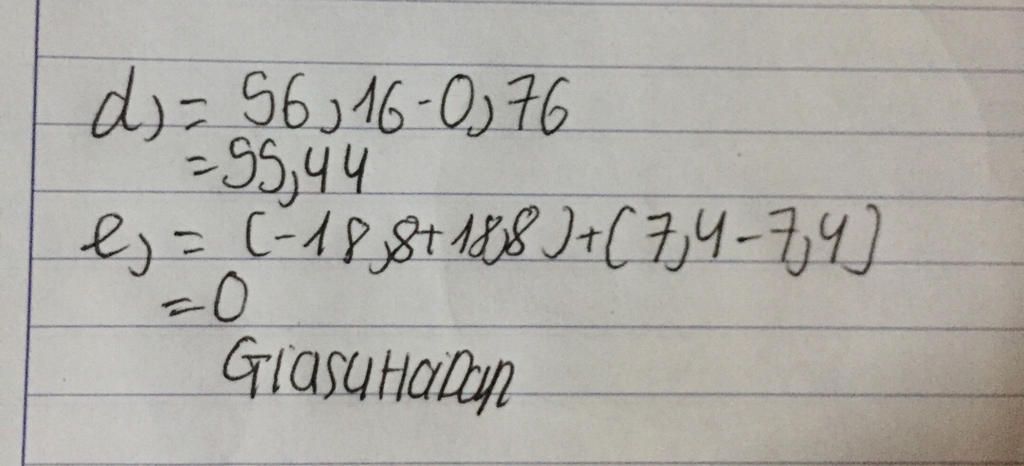 d, = 56,16-0,76
=55,44
e, = (-18,8+18,8)+(7,4-7,4)
=0
GiasuHaDan